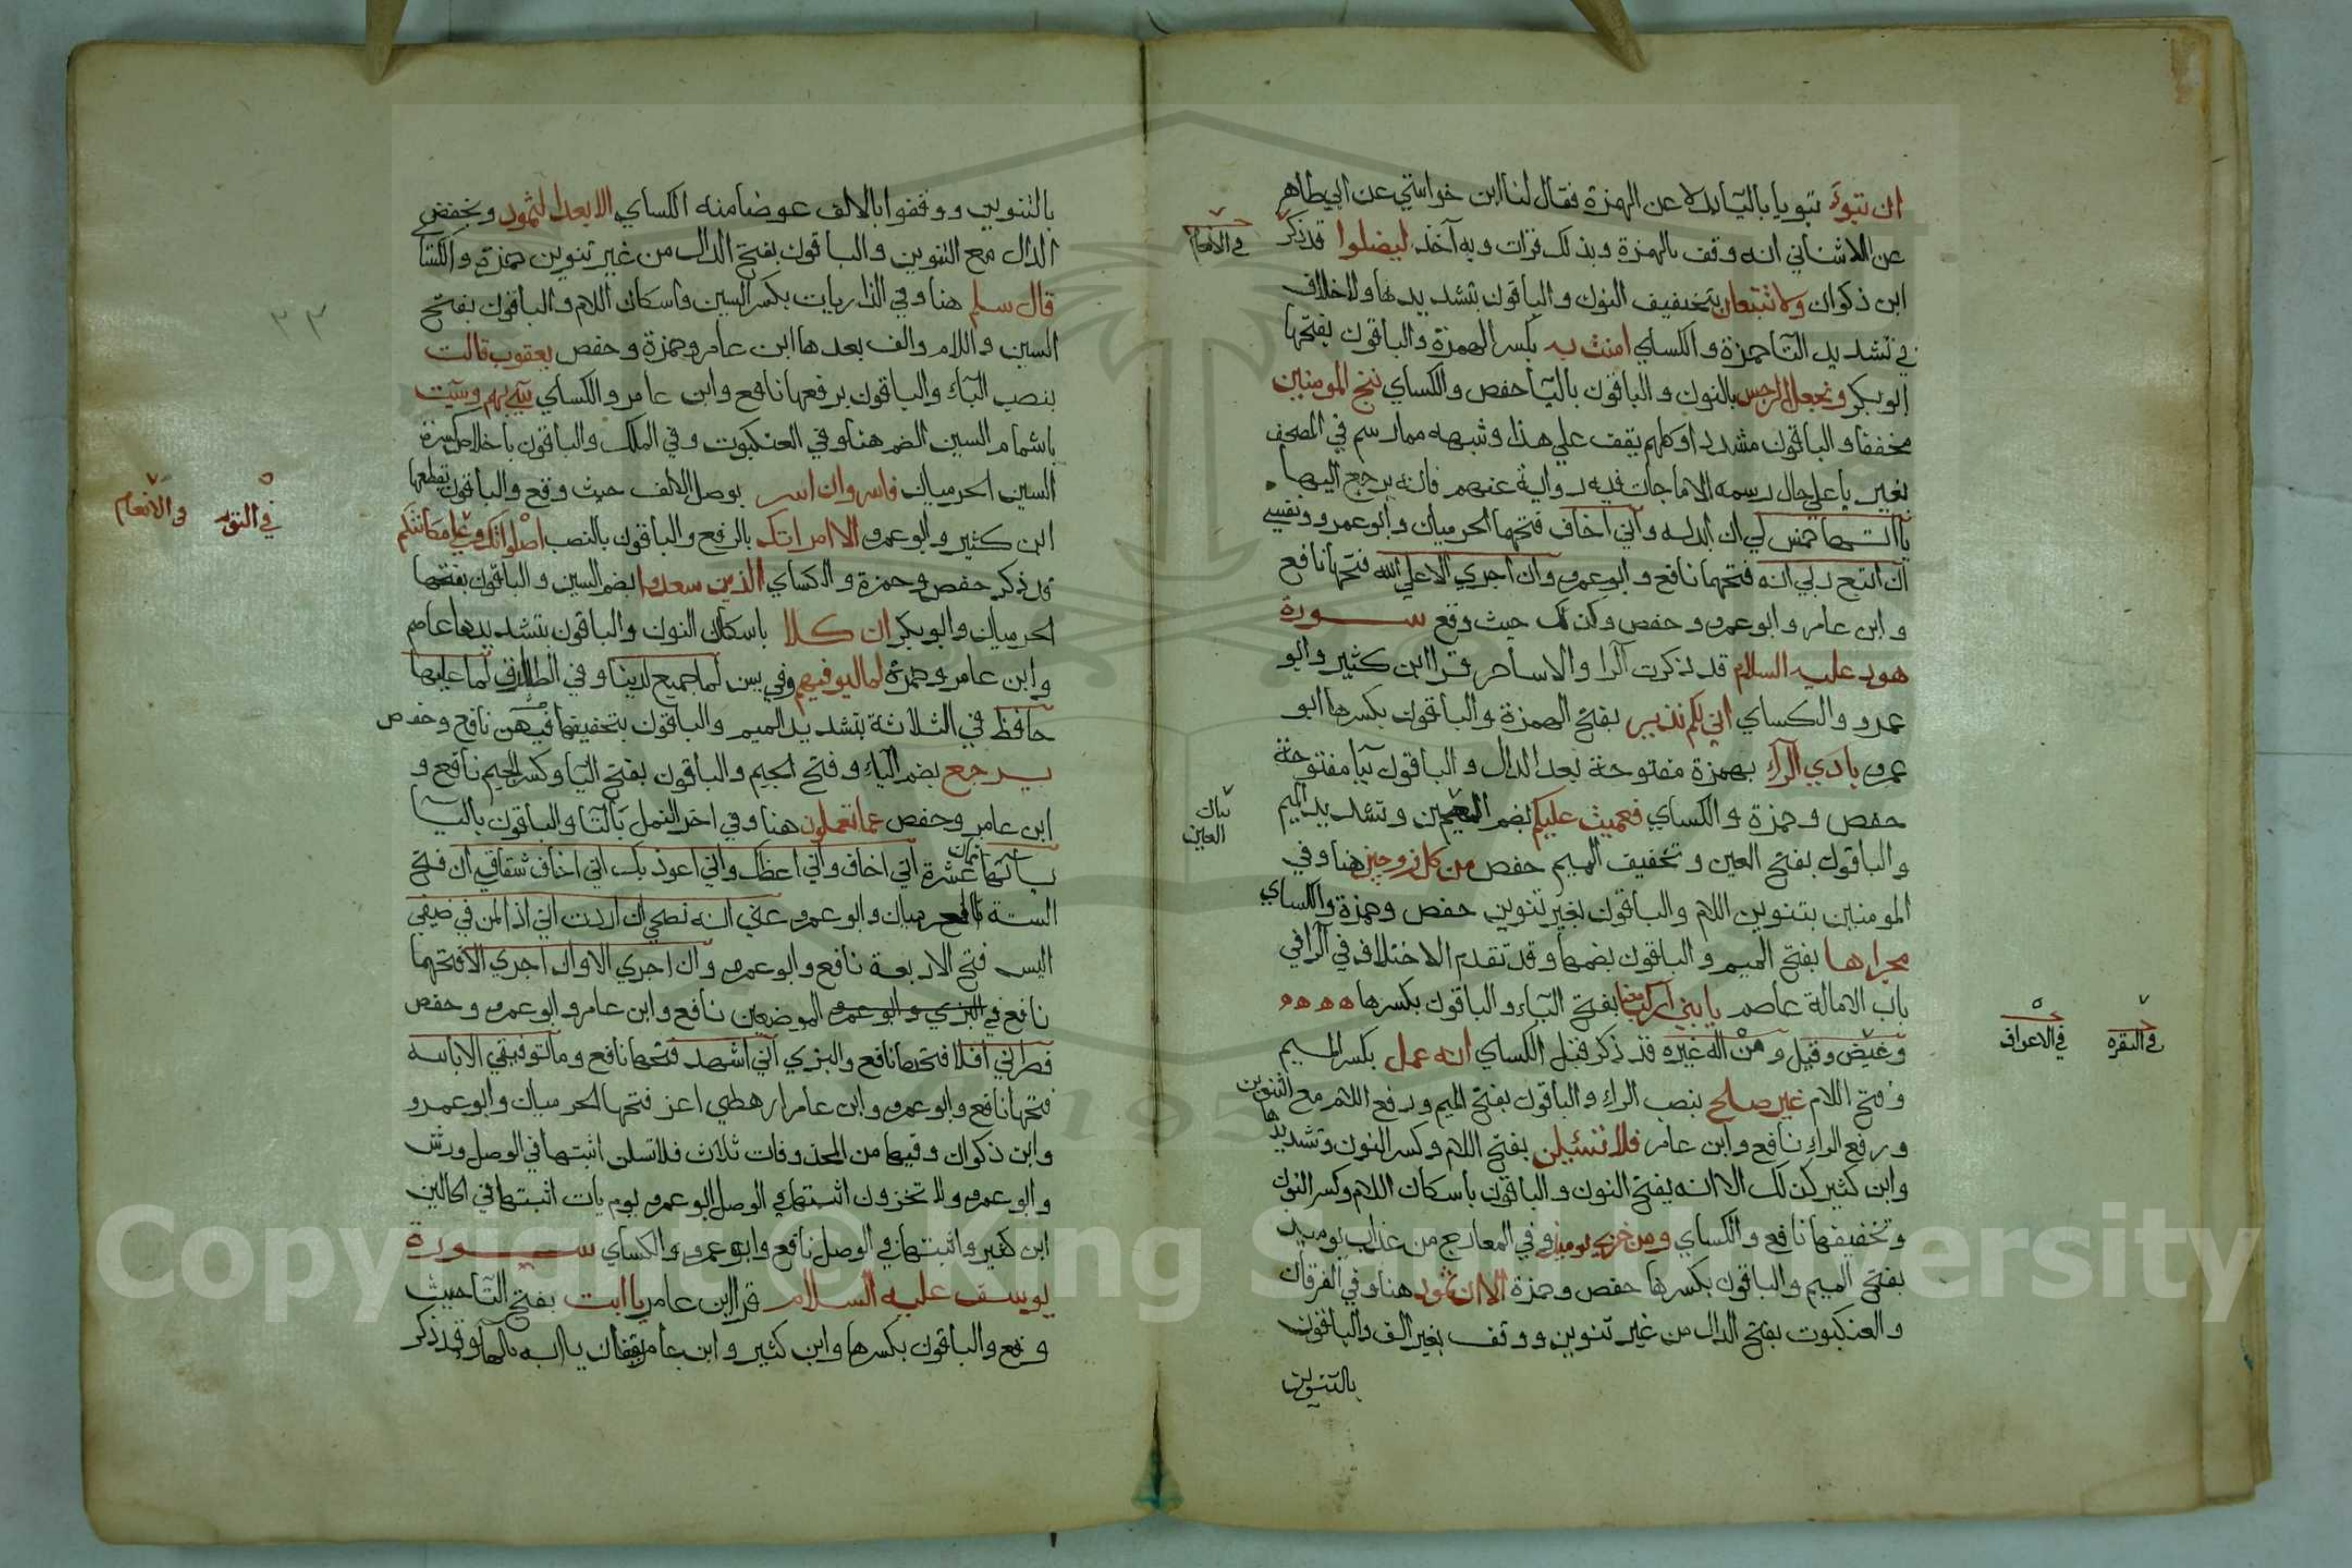 ان تبوء تبويا باليا بدلا عن الهمزة فقال لنا ابن خواستي عن ابي طاهر
عن الاشناني انه وقف بالهمزة وبذلك قرات وبه آخذ ليضلوا قد ذكر
في الانعام
ابن ذكوان ولا تتبعان بتخفيف النون والباقون بتشديدها ولا خلاف
في تشديد التا حمزة والكساي امنت به بكسر الهمزة والباقون بفتحها
ابو بكر ونجعل الرجس بالنون والباقون باليا حفص والكساي ننج المومنين
مخففا والباقون مشددا وكلهم يقف علي هذا وشبهه مما رسم في المصحف
بغير يا علي حال رسمه الا ما جات فيه رواية عنهم فانه يرجع اليها
يااتها خمس لي ان ابدله واني اخاف فتحها الحرميان وابو عمرو ونفسي
ان اتبع ربي انه فتحها نافع وابو عمرو وان اجري الا علي الله فتحها نافع
وابن عامر وابو عمرو وحفص وكذلك حيث وقع سورة
هود عليه السلام قد ذكرت الرا والاساحر قرا ابن كثير وابو
عمرو والكساي اني لكم نذير بفتح الهمزة والباقون بكسرها ابو
عمرو بادي الراء بهمزة مفتوحة بعد الدال والباقون بيا مفتوحة
حفص وحمزة والكساي فعميت عليكم بضم العين وتشديد الميم
بيان
العين
والباقون بفتح العين وتخفيف الميم حفص من كل زوجين هنا وفي
المومنين بتنوين اللام والباقون بغير تنوين حفص وحمزة والكساي
مجراها بفتح الميم والباقون بضمها وقد تقدم الاختلاف في الرا في
باب الامالة عاصم يا بني اركب معنا بفتح الياء والباقون بكسرها ه ه ه ه
وغيض وقيل و من اله غيره قد ذكر قبل الكساي انه عمل بكسر الميم
في الاعراف
في البقرة
وفتح اللام غير صلح بنصب الراء والباقون بفتح الميم ورفع اللام مع التنوين
ورفع الراء نافع وابن عامر فلا تسئلن بفتح اللام وكسر النون وتشديدها
وابن كثير كذلك الا انه يفتح النون والباقون باسكان اللام وكسر النون
وتخفيفها نافع والكساي ومن خزي يوميذ وفي المعارج من عذاب يوميذ
بفتح الميم والباقون بكسرها حفص وحمزة الا ان ثمود هنا وفي الفرقان
والعنكبوت بفتح الدال من غير تنوين ووقف بغير الف والباقون
بالتنوين
بالتنوين ووقفوا بالالف عوضا منه الكساي الا بعدا لثمود وبخفض
الدال مع التنوين والباقون بفتح الدال من غير تنوين حمزة والكسا
قال سلم هنا وفي الذاريات بكسر السين واسكان اللام والباقون بفتح
٣٣
السين واللام والف بعدها ابن عامر وحمزة وحفص يعقوب قالت
بنصب الباء والباقون برفعها نافع وابن عامر والكساي سيء بهم وسيئت
باشمام السين الضم هنا وفي العنكبوت وفي الملك والباقون باخلاص كسرة
السين الحرميان فاسر وان اسر بوصل الالف حيث وقع والباقون بقطعها
ابن كثير وابو عمرو الا امراتك بالرفع والباقون بالنصب اصلواتك وعلى مكانتكم
في التوبة
و الانعام
قد ذكر حفص وحمزة والكساي الذين سعدوا بضم السين والباقون بفتحها
الحرميان وابو بكر ان كلا باسكان النون والباقون بتشديدها عاصم
وابن عامر وحمزة لما ليوفينهم وفي يس لما جميع لدينا وفي الطارق لما عليها
حافظ في الثلاثة بتشديد الميم والباقون بتخفيفها فيهن نافع وحفص
يرجع بضم الياء وفتح الجيم والباقون بفتح اليا وكسر الجيم نافع و
ابن عامر وحفص عما تعملون هنا وفي اخر النمل بالتا والباقون باليا
ياآتها ثمان عشرة اني اخاف واني اعظك واني اعوذ بك اني اخاف شقاقي ان فتح
الستة الحرميان وابو عمرو عني انه نصحي ان اردت اني اذا لمن في ضيفي
اليس فتح الاربعة نافع وابو عمرو وان اجري الا وان اجري الا فتحهما
نافع في البزي وابو عمرو الموضعين نافع وابن عامر وابو عمرو وحفص
فطرني افلا فتحها نافع والبزي اني اشهد فتحها نافع وما توفيقي الا بالله
فتحها نافع وابو عمرو وابن عامر ارهطي اعز فتحها الحرميان وابو عمرو
وابن ذكوان وفيها من المحذوفات ثلاث فلا تسلن اثبتها في الوصل ورش
وابو عمرو ولا تخزون اثبتها في الوصل ابو عمرو يوم يات اثبتها في الحالين
ابن كثير واثبتها في الوصل نافع وابو عمرو والكساي سورة
يوسف عليه السلام قرا ابن عامر يا ابت بفتح التا حيث
وقع والباقون بكسرها وابن كثير وابن عامر يقفان يا ابه بالها وقد ذكر
Copyright © King Saud University
195